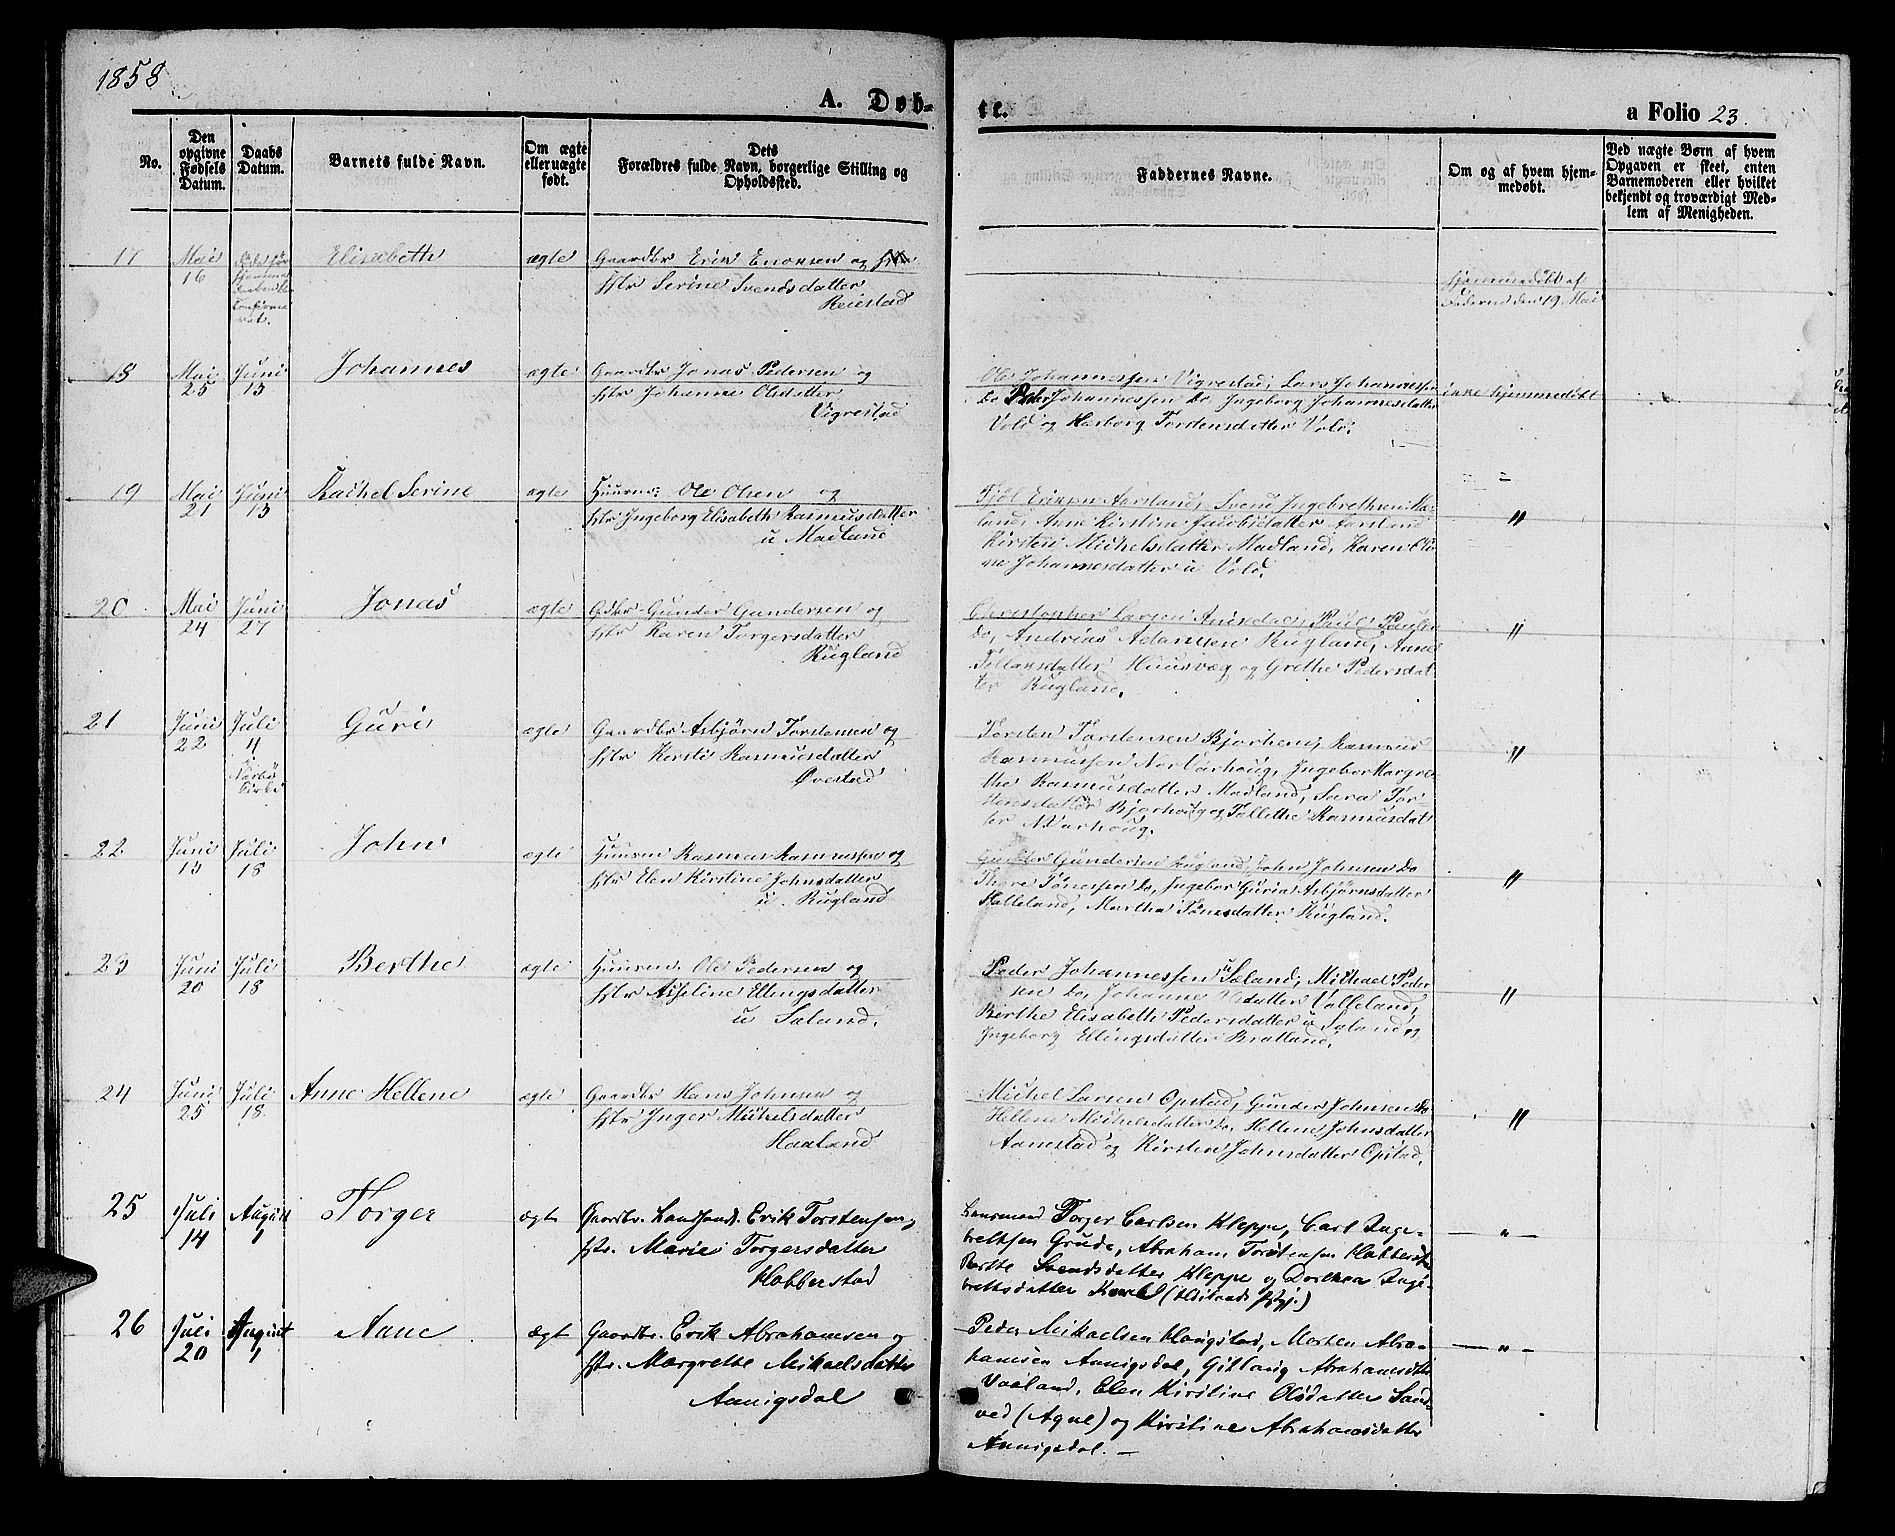 1858
A. Døb-
te.
a Folio 23.
No.
Den opgivne Fødsels Datum.
Daabs Datum.
Barnets fulde Navn.
Om ægte eller uægte født.
Dets Forældres fulde Navn, borgerlige Stilling og Opholdssted.
Faddernes Navne.
Om og af hvem hjemmedøbt.
Ved uægte Børn af hvem Opgaven er skeet, enten Barnemoderen eller hvilket bekjendt og troværdigt Medlem af Menigheden.
17 Mai 16 Elisabeth ægte Gaardbr Erik Enoksen og
Hstr Serine Svendsdatter
Reiestad
Hjemmedøbt af
Faderen den 19 Mai
18 Mai 25 Juni 13 Johannes ægte Gaardbr Jonas Pedersen og
Hstr Johanne Olsdatter
Vigrestad
Ole Johannessen Vigrestad, Lars Johannessen
Do Peder Johannessen Do Ingeborg Johannesdatter
Vold og Torstensdatter Vold.
ikke hjemmedøbt
19 Mai 21 Juni 13 Rachel Serine ægte Huusm: Ole Olsen og
Hstr Ingeborg Elisabeth Rasmusdatter
u Madland
Svend Ingebrethsen Mad
land, Ane Kirstine Jacobsdatter
Kirsten Michelsdatter Madland, Karen Oli
ne Johannesdatter u Vold.
"
20 Mai 24 Juni 27 Jonas ægte Gdbr Gunder Gundersen og
Hstr Karen Torgersdatter
Rugland
Christopher Larsen Paul Paulsen
Do, Andreas Adamsen Rugland, Anne
Huusvæg og Grethe Pedersdat
ter Rugland.
"
21 Juni 22 Juli 4 i Nærbø Kirke Guri ægte Gaardbr Asbjørn Torstensen og
Hstr Kirsti Rasmusdatter
Øvestad
Torsten Torstensen Bjorhoug, Rasmus
Rasmussen Nor Varhoug, Ingebor Margre
the Rasmusdatter Madland, Sara Tor
stensdatter Bjorhoug og Tallethe Rasmusdat
ter N. Varhoug.
"
22 Juni 13 Juli 18 John ægte Huusm Rasmus Rasmussen og
Hstr Elen Kirstine Johnsdatter
u. Rugland
Gunder Gundersen Rugland, John Johnsen Do
Thore Tønessen Do, Ingebor Guria Asbjørnsdatter
Martha Tønesdatter Rugland.
"
23 Juni 20 Juli 18 Berthe ægte Huusm. Ole Pedersen og
Hstr Aiseline Ellingsdatter
u Søland.
Peder Johannessen u Søland, Michael Peder
sen Do, Johanne Olsdatter Volleland,
Birthe Elisabeth Pedersdatter u Søland og
Ingeborg Ellingsdatter Bratland.
"
24 Juni 25 Juli 18 Anne Hellene ægte Gaardbr Hans Johnsen og
Hstr Inger Michelsdatter
Haaland
Michel Larsen Opstad, Gunder Johnsen Do
Hellene Michelsdatter Do, Hellene Johnsdatter
Aanestad og Kirsten Johnsdatter Opstad.
"
25 Juli 14 August 1 Torger ægte Gaardbr. Erik Torstensen og
Hstr. Marie Torgersdatter
Hobberstad
Lensmand Torger Carlsen Kleppe, Carl Inge-
brethsen Grude, Abraham Torstensen Hobberstad
Berthe Svendsdatter Kleppe og Dorthea Inge-
brethsdatter
— " —
26 Juli 20 August 1 Aane ægt Gaardbr. Erik Abrahamsen og
Hstr. Margrethe Mikaelsdatter
Aanigsdal
Peder Mikaelsen Haugstad, Morten Abra-
hamsen Aanigsdal, Gitlaug Abrahamsdtr
Vaaland, Elen Kirstine Olsdatter Sand-
ved (Ogne) og Kirstine Abrahamsdatter
Aanigsdal. —
— " —